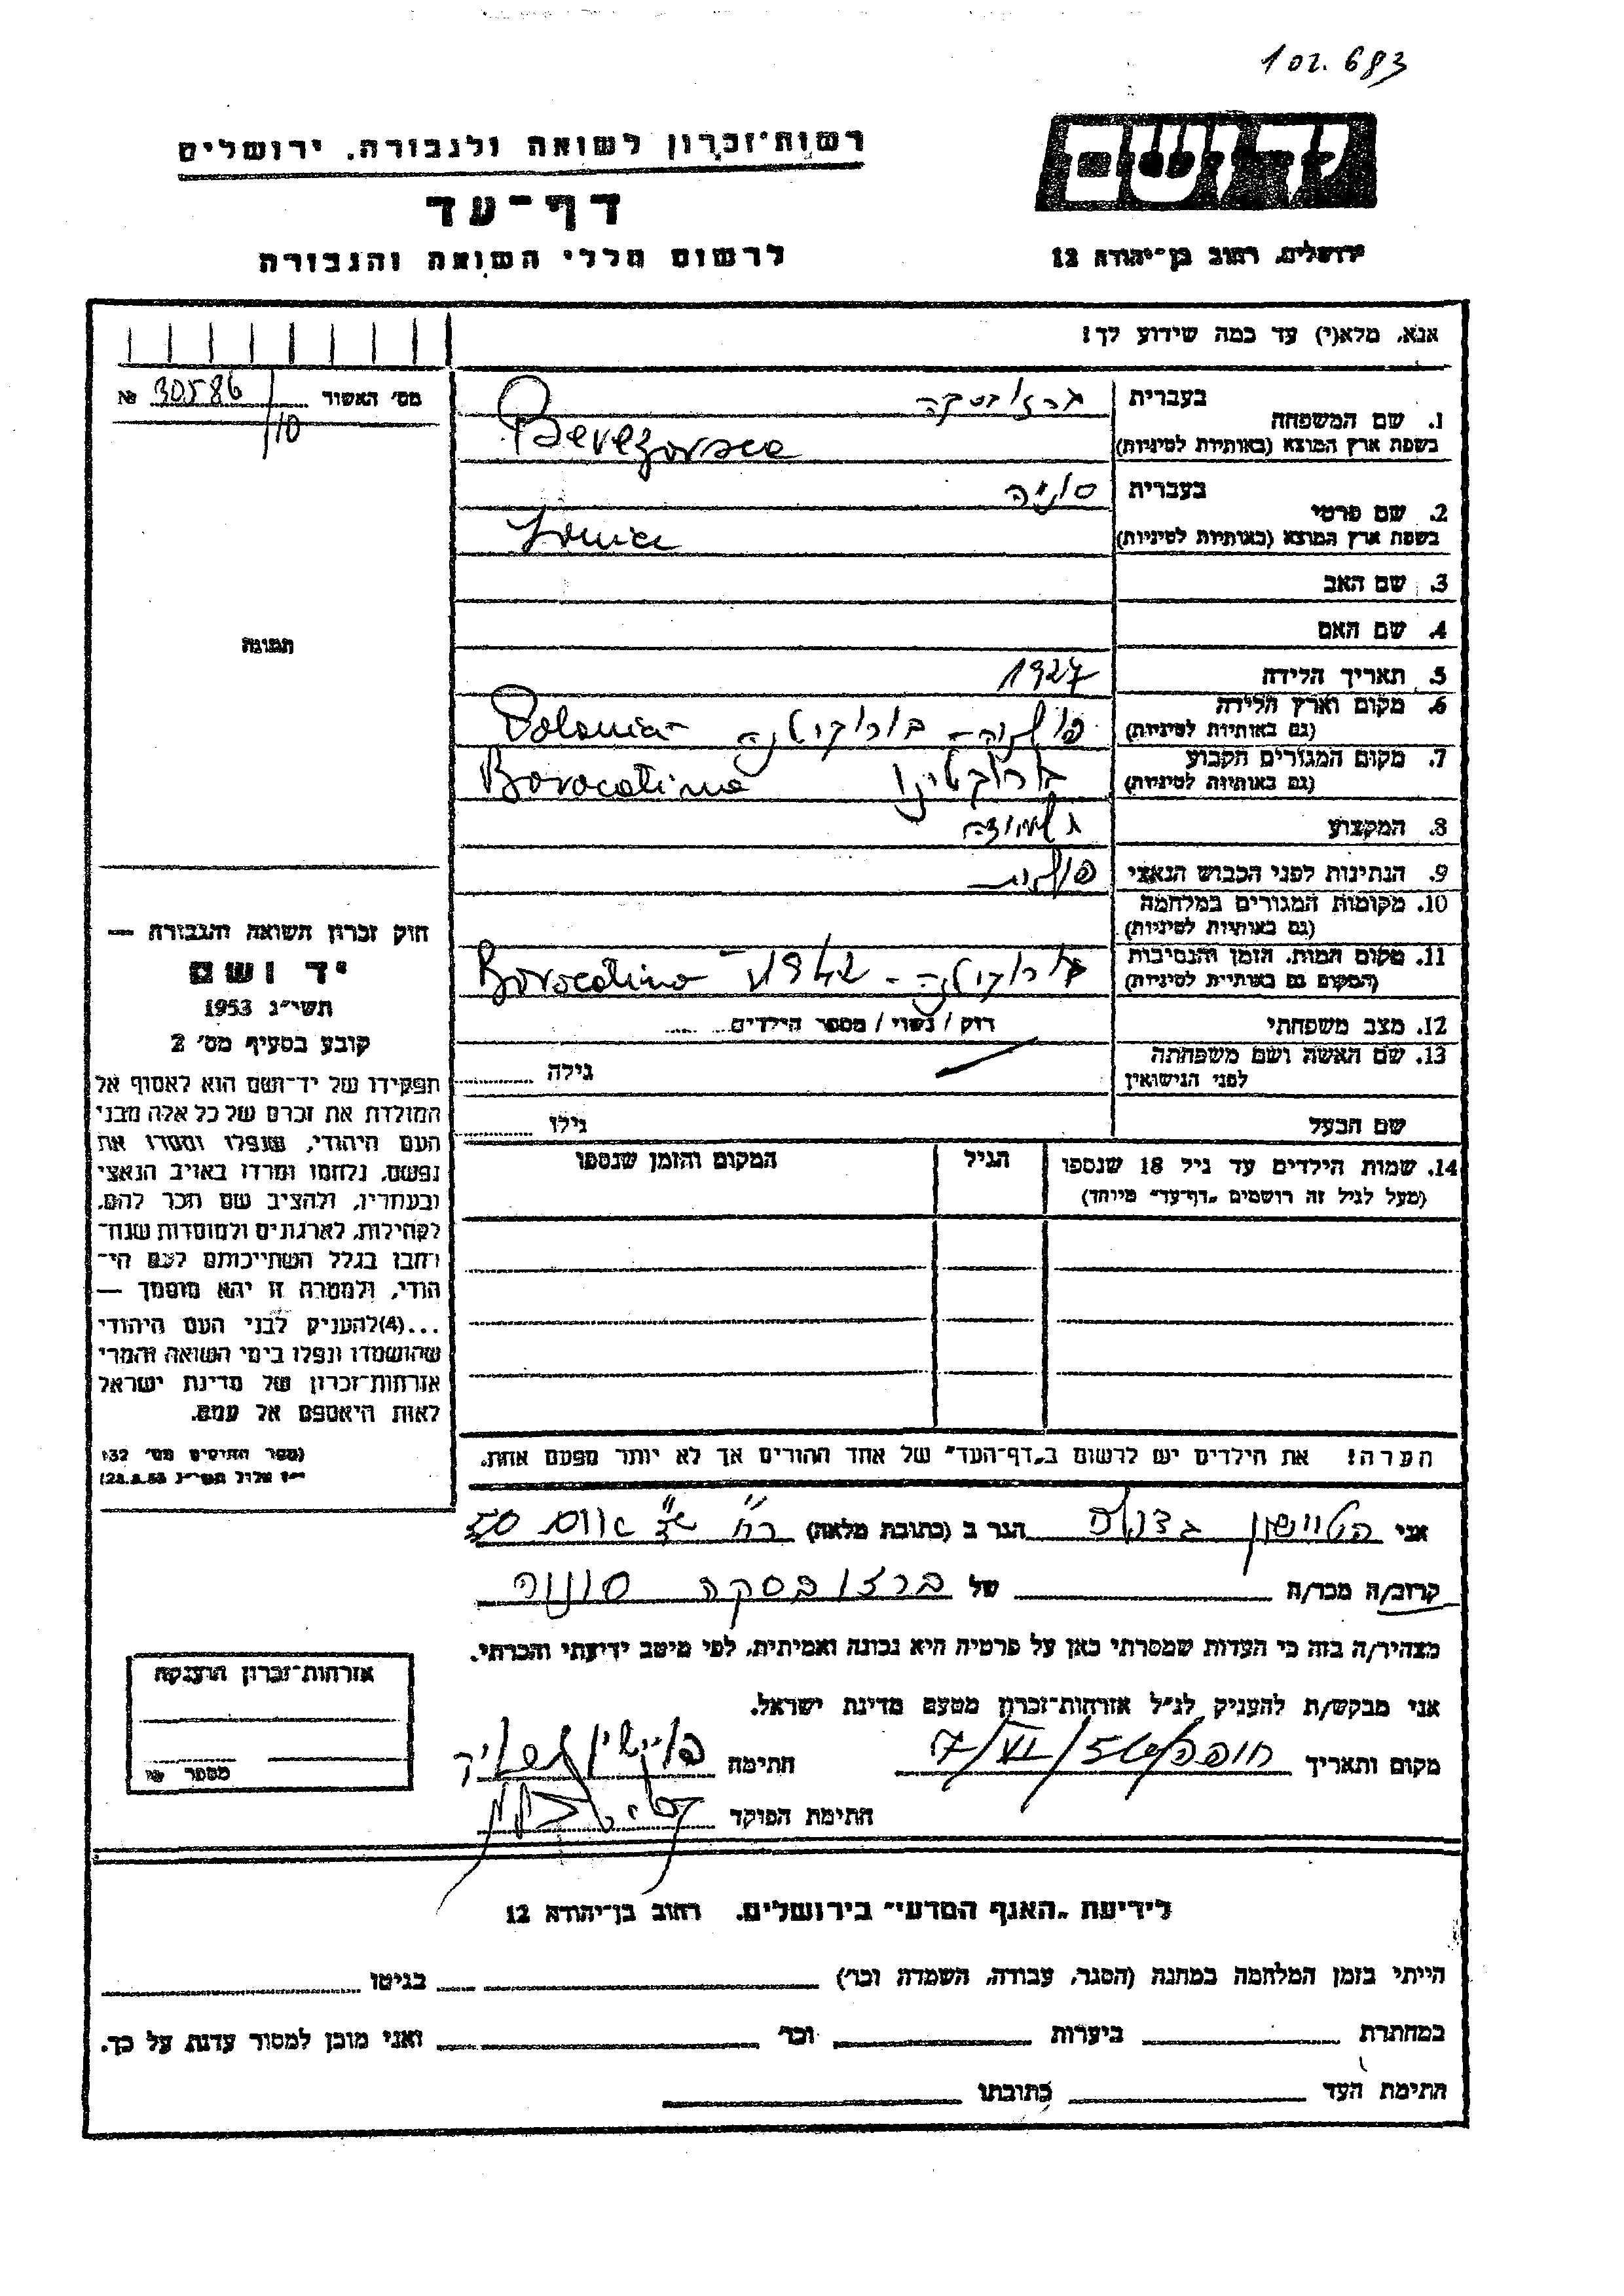 102.683
יד ושם
רשות־זכרון לשואה ולגבורה, ירושלים
דף־עד
לרשום חללי השואה והגבורה
ירושלים, רחוב בן־יהודה 12
אנא, מלא(י) עד כמה שידוע לך!
מס׳ האשור 30586/10 №
1. שם המשפחה
בעברית ברזובסקה
בשפת ארץ המוצא (באותיות לטיניות) Berezovsca
2. שם פרטי
בעברית סוניה
בשפת ארץ המוצא (באותיות לטיניות) Sonia
3. שם האב
4. שם האם
5. תאריך הלידה 1927
6. מקום וארץ הלידה
(גם באותיות לטיניות) פולניה - בורוקטינה Polonia-
7. מקום המגורים הקבוע
(גם באותיות לטיניות) Borocatino
8. המקצוע
9. הנתינות לפני הכבוש הנאצי פולנית
10. מקומות המגורים במלחמה
(גם באותיות לטיניות)
11. מקום המות, הזמן והנסיבות
(המקום גם באותיות לטיניות) בורוקטינה - 1942 - Borocatino
12. מצב משפחתי רוק / נשוי / מספר הילדים
13. שם האשה ושם משפחתה
לפני הנישואין גילה
שם הבעל גילו
14. שמות הילדים עד גיל 18 שנספו
(מעל לגיל זה רושמים „דף־עד״ מיוחד)
הגיל
המקום והזמן שנספו
הערה! את הילדים יש לרשום ב„דף־העד״ של אחד ההורים אך לא יותר מפעם אחת.
תמונה
חוק זכרון השואה והגבורה —
יד ושם
תשי״ג 1953
קובע בסעיף מס׳ 2
תפקידו של יד־ושם הוא לאסוף אל
המולדת את זכרם של כל אלה מבני
העם היהודי, שנפלו ומסרו את
נפשם, נלחמו ומרדו באויב הנאצי
ובעוזריו, ולהציב שם וזכר להם,
לקהילות, לארגונים ולמוסדות שנח־
רבו בגלל השתייכותם לעם הי־
הודי, ולמטרה זו יהא מוסמך —
...(4)להעניק לבני העם היהודי
שהושמדו ונפלו בימי השואה והמרי
אזרחות־זכרון של מדינת ישראל
לאות היאספם אל עמם.
(ספר החוקים מס׳ 132
י״ז אלול תשי״ג 28.8.53)
אני הגר ב (כתובת מלאה)
קרוב/ה מכר/ה של ברזובסקה סוניה
מצהיר/ה בזה כי העדות שמסרתי כאן על פרטיה היא נכונה ואמיתית, לפי מיטב ידיעתי והכרתי.
אני מבקש/ת להעניק לנ״ל אזרחות־זכרון מטעם מדינת ישראל.
מקום ותאריך 7/VI/56 חתימה
חתימת הפוקד
אזרחות־זכרון הוענקה
מספר
לידיעת „האגף המדעי״ בירושלים, רחוב בן־יהודה 12
הייתי בזמן המלחמה במחנה (הסגר, עבודה, השמדה וכו׳) בגיטו
במחתרת ביערות וכו׳ ואני מוכן למסור עדות על כך.
חתימת העד כתובתו